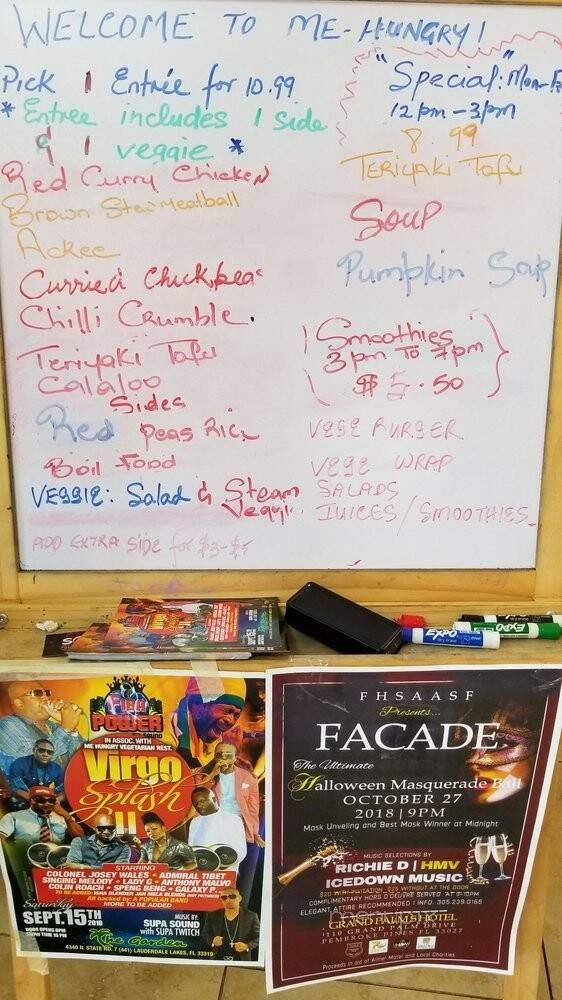 WELCOME TO ME-HUNGRY!
Pick 1 Entrée for 10.99
*Entree includes 1 side
& 1 veggie *
Red Curry Chicken
Brown Stew Meatball
Ackee
Curried Chickpea
Chilli Crumble.
Teriyaki Tofu
Calaloo
Sides
Red Peas Rice
Boil Food
VEGGIE: Salad & Steam
Veggi
ADD EXTRA SIDE for $3-$5
"Special: Mon-F
12pm-3pm
8.99
TERIYAKI Tofu
Soup
Pumpkin Soup
Smoothies
3pm To 7pm
$5.50
VEGE BURGER
VEGE WRAP
SALADS
JUICES/SMOOTHIES
EXPO
EXPO
POWER
SOUND
IN ASSOC. WITH
ME HUNGRY VEGETARIAN REST.
Virgo
Splash
II
STARRING
COLONEL JOSEY WALES • ADMIRAL TIBET
SINGING MELODY • LADY G • ANTHONY MALVO
COLIN ROACH • SPENG BENG • GALAXY P.
All backed by: A POPULAR BAND
MORE TO BE ADDED
Saturday
SEPT.15TH
2018
DOOR OPENS 8PM
SHOW TIME 10 PM
MUSIC BY:
SUPA SOUND
with SUPA TWITCH
The Garden
4340 N. STATE RD. 7 (441) LAUDERDALE LAKES, FL 33319
FHSAASF
Presents...
FACADE
The Ultimate
Halloween Masquerade Ball
OCTOBER 27
2018 | 9PM
Mask Unveling and Best Mask Winner at Midnight
MUSIC SELECTIONS BY
RICHIE D | HMV
ICEDOWN MUSIC
$20 W/DONATION, $25 WITHOUT AT THE DOOR
COMPLIMENTARY HORS D'OEUVRE SERVED AT 9-11PM
ELEGANT ATTIRE RECOMMENDED | INFO. 305.239.0165
GRAND PALMS HOTEL
110 GRAND PALM DRIVE
PEMBROKE PINES FL 33027
Proceeds in aid of Alumni Mater and Local Charities